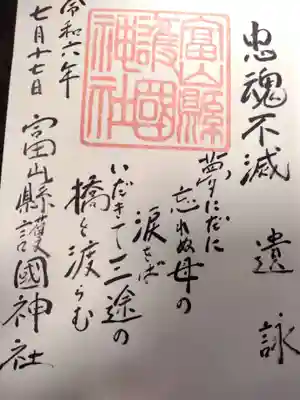 忠魂不滅
遺詠
夢にだに
忘れぬ母の
涙をば
いだきて三途の
橋を渡らむ
富山縣護國神社
富山縣護國神社
令和六年
七月十七日